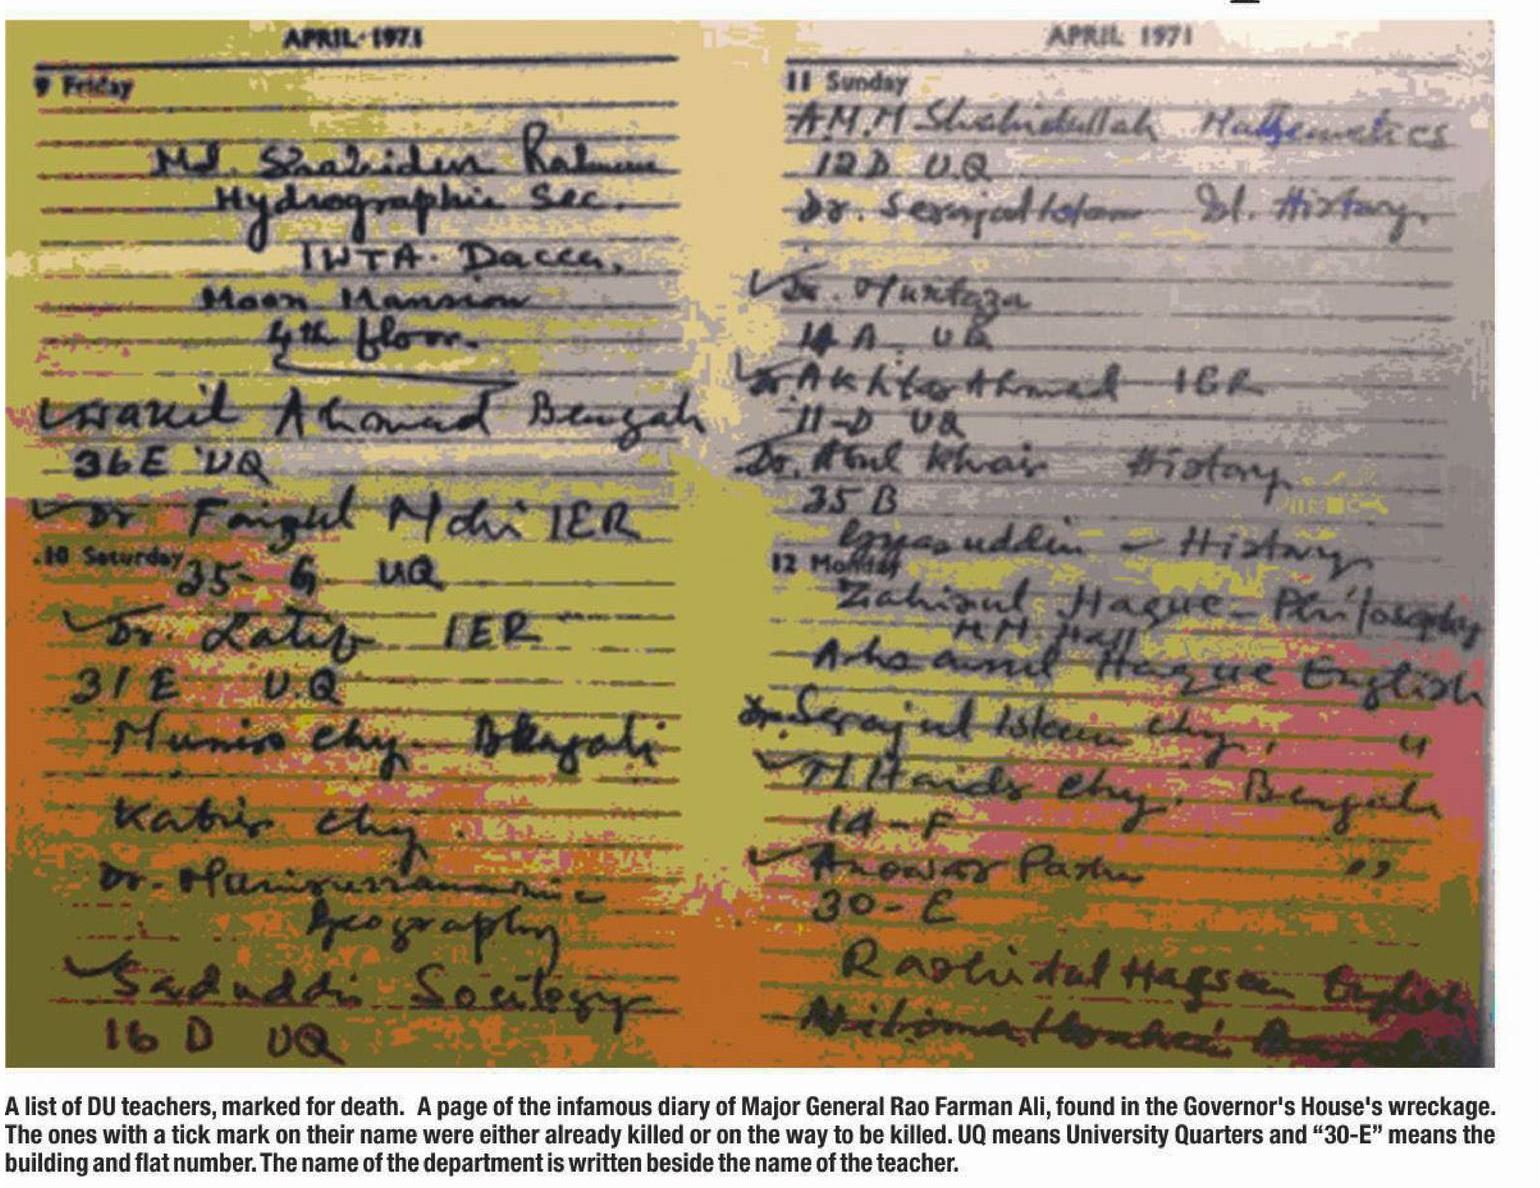 APRIL 1971
9 Friday
Md. Shahidur Rahman
Hydrographic Sec.
IWTA. Dacca,
Moon Mansion
4th floor.
Wakil Ahmad Bengali
36 E UQ
Dr Faizul Mohi IER
10 Saturday
35- G UQ
Dr. Latif IER
31 E U.Q
Munir Chy. Bengali
Kabir Chy.
Dr.
Geography
Saduddin Sociology
16 D UQ
APRIL 1971
11 Sunday
A.M.M Shahidullah Mathematics
12 D U.Q
Dr. Serajul Islam Isl. History
Dr. Murtaza
14 A. UQ
Dr Akhtar Ahmad IER
11-D UQ
Dr. Abul Khair History
35 B
Gyasuddin - History
12 Monday
Zahirul Haque - Philosophy
M.M. Hall
Ahsanul Haque English
Dr. Serajul Islam Chy. "
M Haider Chy. Bengali
14-F
Anowar Pasha ,,
30-E
Rashidul Hassan English
A list of DU teachers, marked for death. A page of the infamous diary of Major General Rao Farman Ali, found in the Governor's House's wreckage.
The ones with a tick mark on their name were either already killed or on the way to be killed. UQ means University Quarters and “30-E” means the
building and flat number. The name of the department is written beside the name of the teacher.